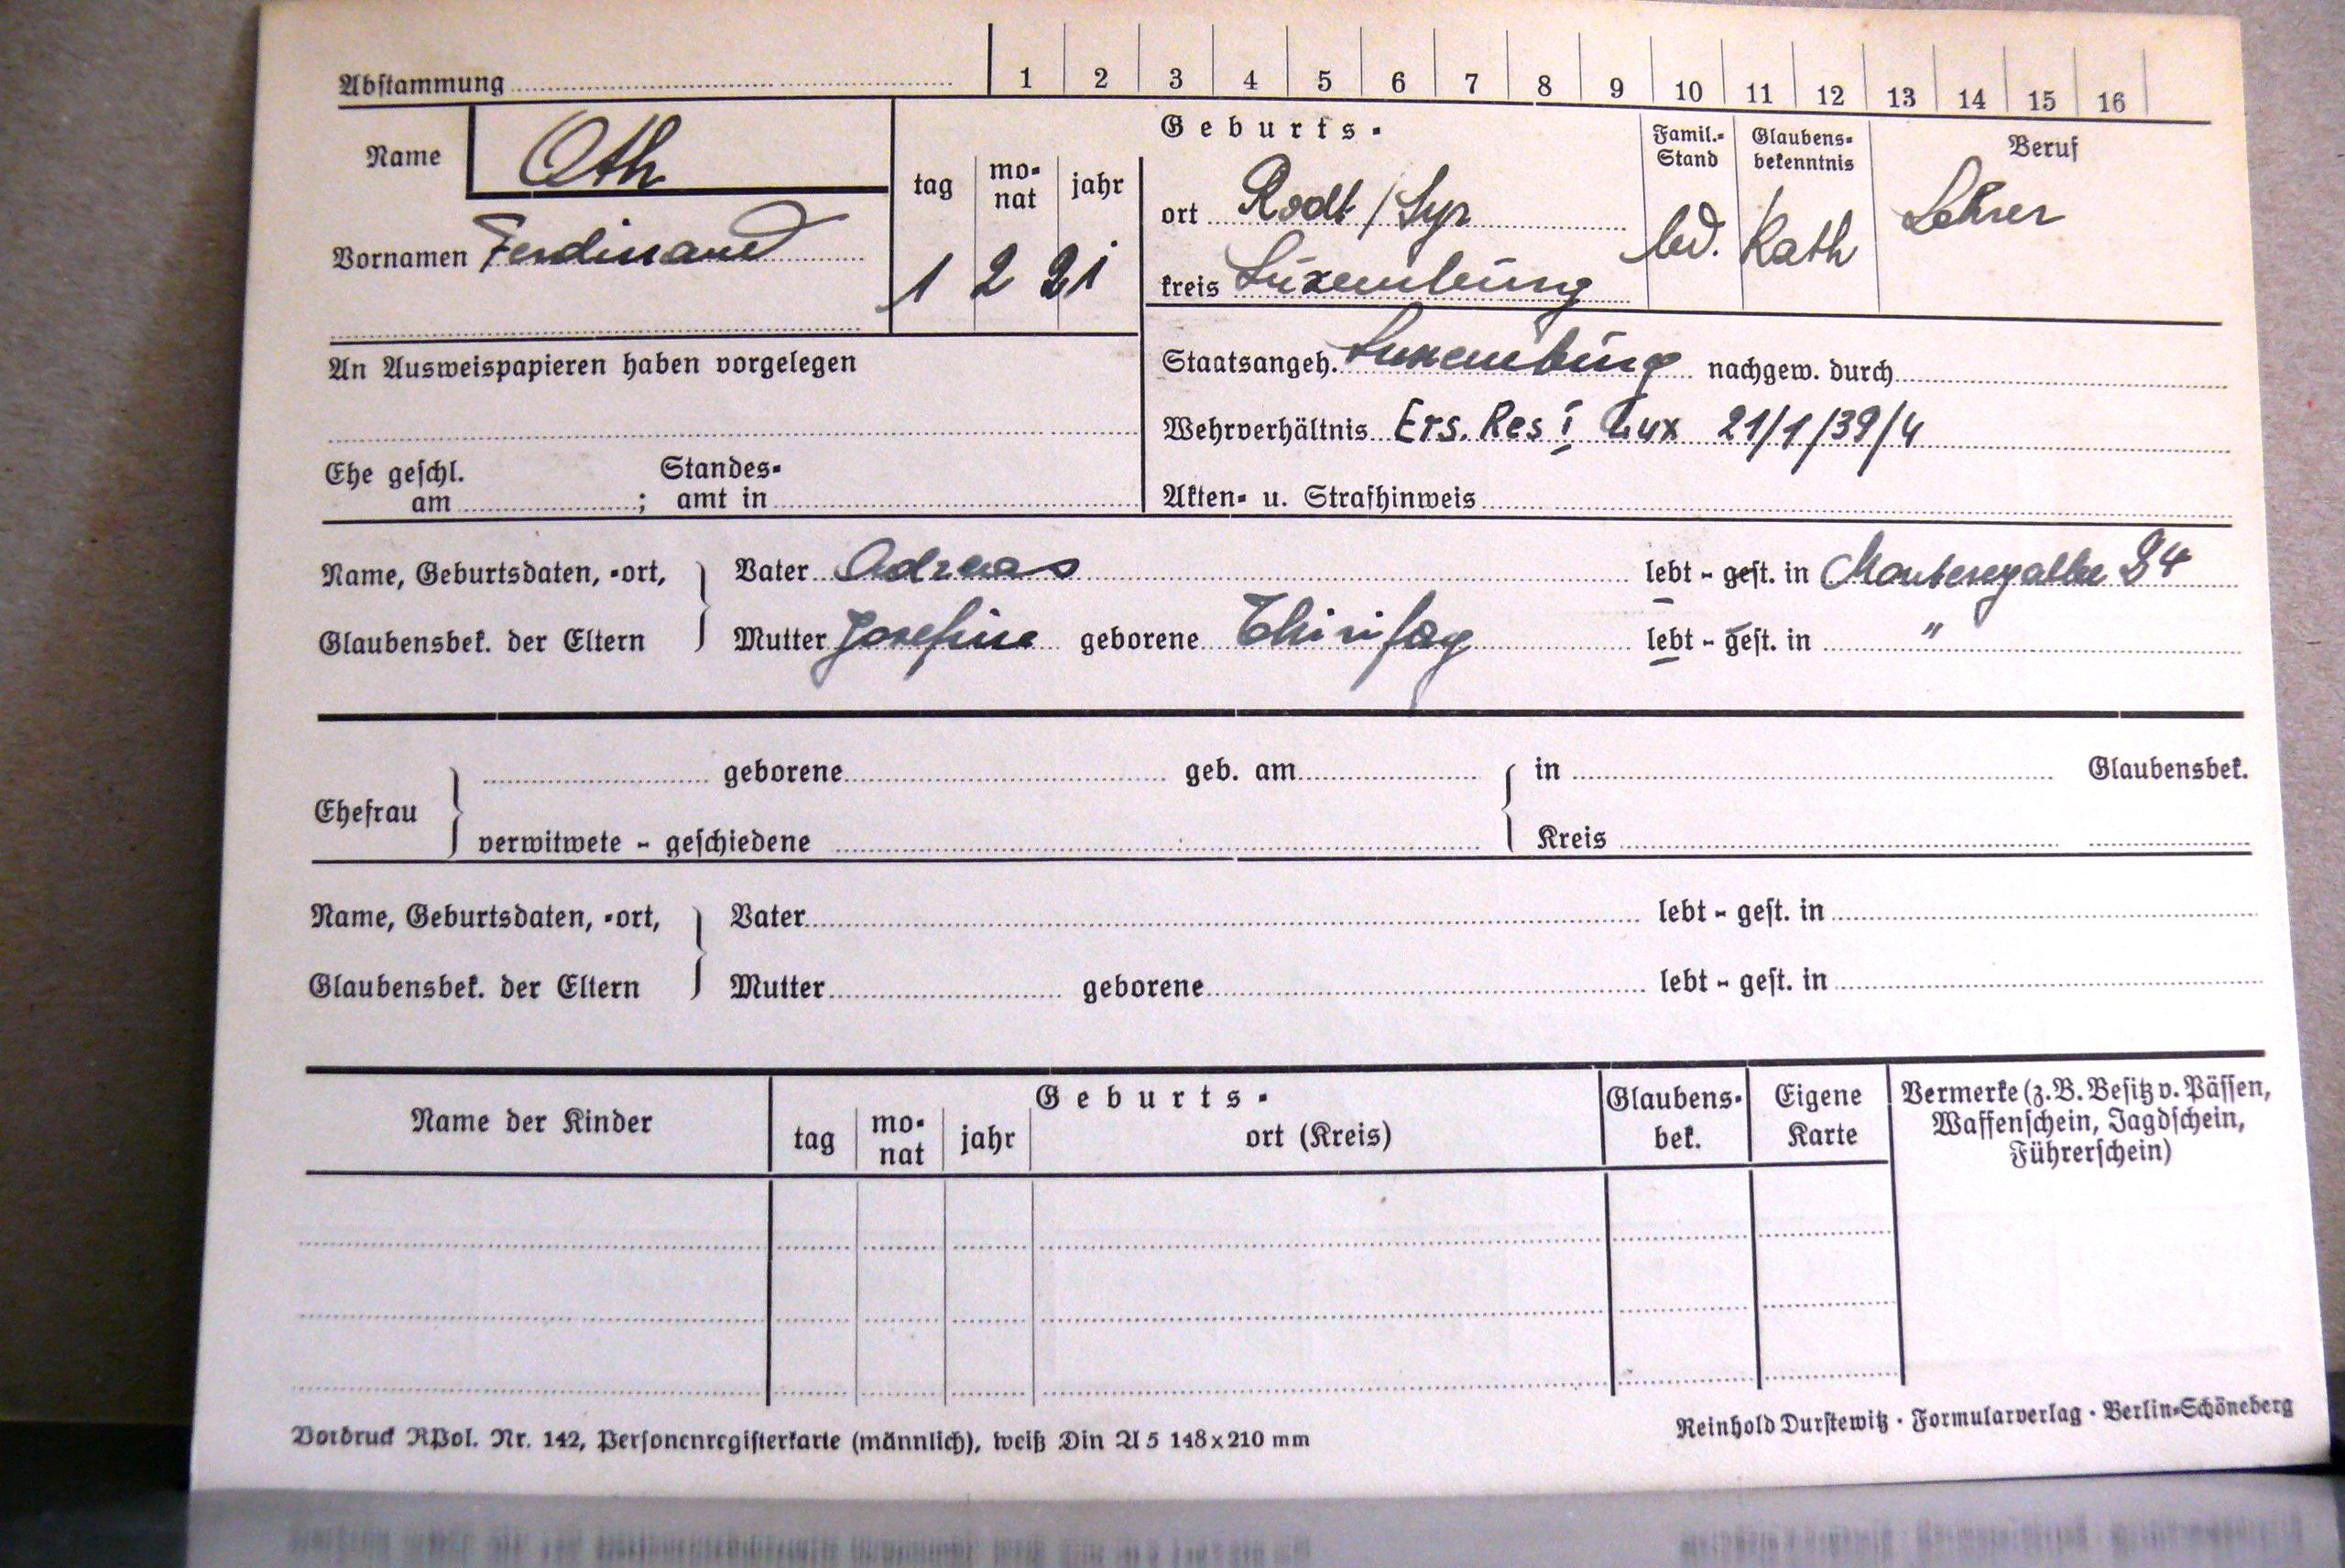 Abstammung 1 2 3 4 5 6 7 8 9 10 11 12 13 14 15 16
Name Oth
Vornamen Ferdinand
Geburts-
tag mo-nat jahr
1 2 21
ort Rodt / Syr
kreis Luxemburg
Famil.-Stand
led.
Glaubens-bekenntnis
Kath
Beruf
Lehrer
An Ausweispapieren haben vorgelegen
Staatsangeh. Luxemburg nachgew. durch
Wehrverhältnis Ers. Res I Lux 21/1/39/4
Ehe geschl. am ; Standes-amt in
Akten- u. Strafhinweis
Name, Geburtsdaten, -ort, Vater Adreas lebt - gest. in 34
Glaubensbek. der Eltern Mutter Josefine geborene lebt - gest. in "
Ehefrau geborene geb. am in Glaubensbek.
verwitwete - geschiedene Kreis
Name, Geburtsdaten, -ort, Vater lebt - gest. in
Glaubensbek. der Eltern Mutter geborene lebt - gest. in
Name der Kinder
Geburts-
tag mo-nat jahr ort (Kreis)
Glaubens-bek.
Eigene Karte
Vermerke (z. B. Besitz v. Pässen,
Waffenschein, Jagdschein,
Führerschein)
Vordruck RPol. Nr. 142, Personenregisterkarte (männlich), weiß Din A 5 148 x 210 mm
Reinhold Durstewitz · Formularverlag · Berlin-Schöneberg